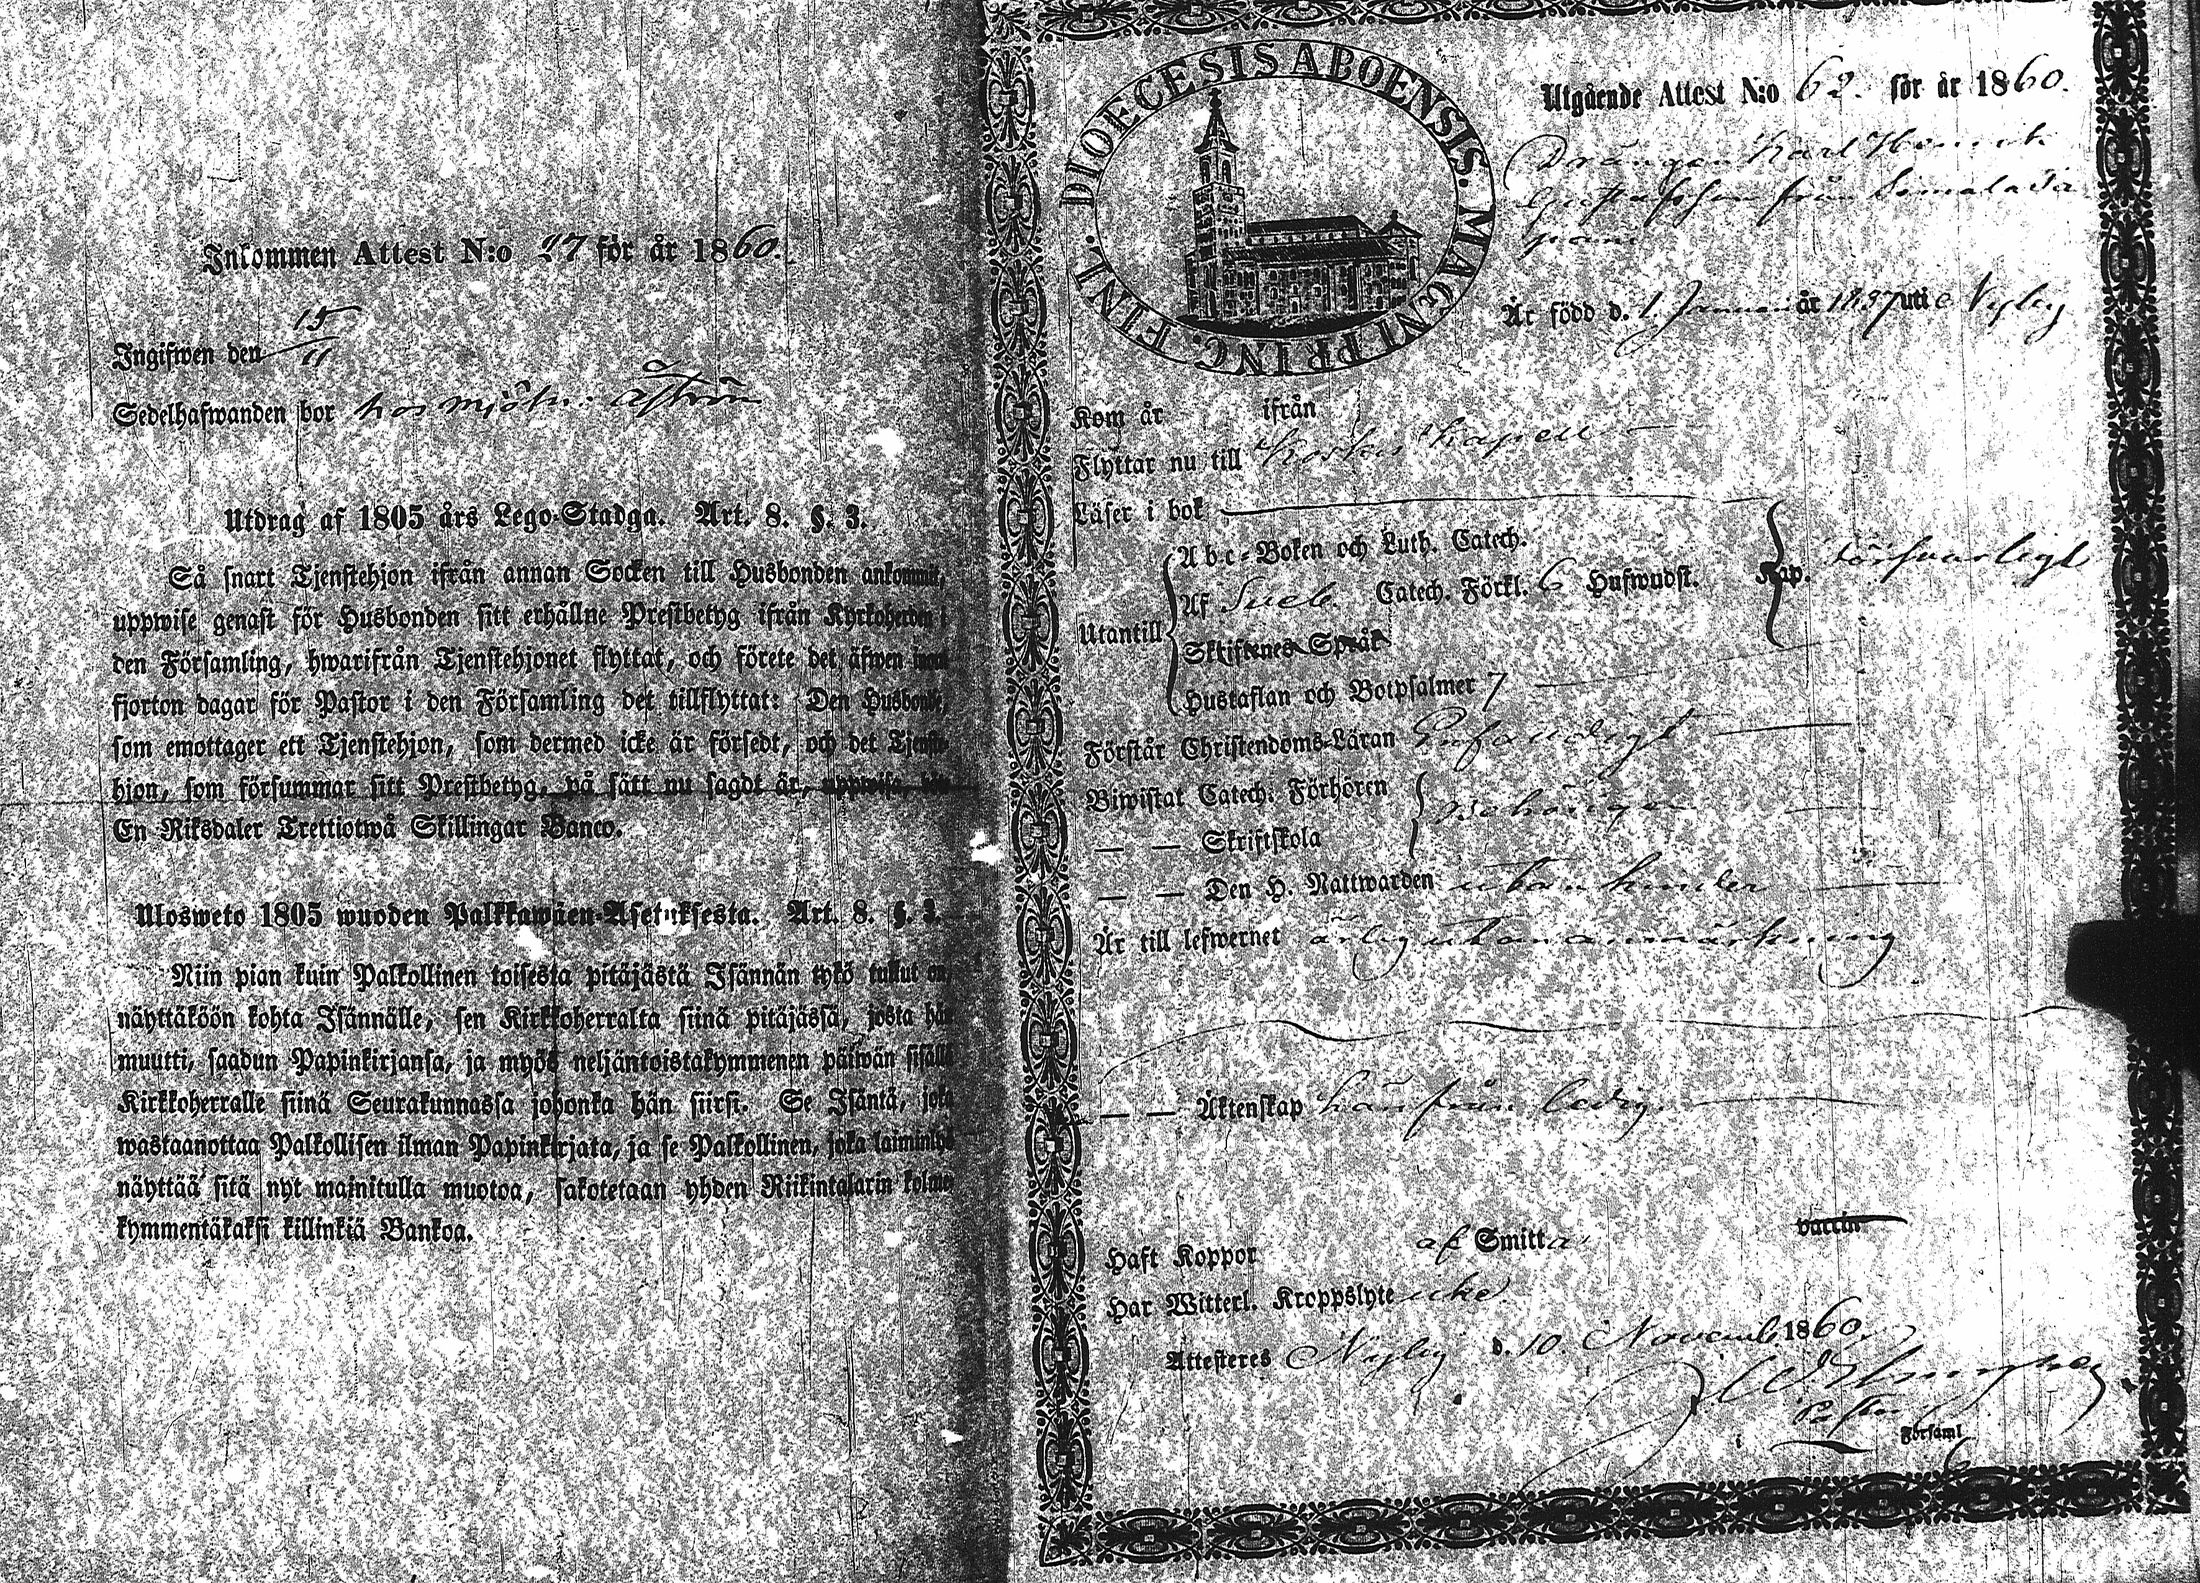 Inkommen Attest N:o 27 för år 1860.
Ingifwen den 15/11
Sedelhafwanden bor hos mjöln. Åström
Utdrag af 1805 års Lego-Stadga. Art. 8. §. 3.
Så snart Tjenstehjon ifrån annan Socken till Husbonden ankommit,
uppwise genast för Husbonden sitt erhållne Prestbetyg ifrån Kyrkoherden i
den Församling, hwarifrån Tjenstehjonet flyttat, och förete det äfwen inom
fjorton dagar för Pastor i den Församling det tillflyttat: Den Husbonde,
som emottager ett Tjenstehjon, som dermed icke är försedt, och det Tjenste-
hjon, som försummar sitt Prestbetyg, på sätt nu sagdt är, uppwisa,
En Riksdaler Trettiotwå Skillingar Banco.
Ulosweto 1805 wuoden Palkkawäen-Asetuksesta. Art. 8. §. 3.
Niin pian kuin Palkollinen toisesta pitäjästä Isännän tykö tullut on,
näyttäköön kohta Isännälle, sen Kirkkoherralta siinä pitäjässä, josta hän
muutti, saadun Papinkirjansa, ja myös neljäntoistakymmenen päiwän sisällä
Kirkkoherralle siinä Seurakunnassa johonka hän siirsi. Se Isäntä, joka
wastaanottaa Palkollisen ilman Papinkirjata, ja se Palkollinen, joka laiminlyö
näyttää sitä nyt mainitulla muotoa, sakotetaan yhden Riikintalarin kolme
kymmentäkaksi killinkiä Bankoa.
DIOECESIS ABOENSIS. MAGNI PRINC. FINL.
Utgående Attest N:o 62. för år 1860.
Drängen Karl Henrik
Gustafsson från
Är född d. 1. Januari år 1837 uti Nyby
Kom år ifrån
Flyttar nu till Korsus Kapell
Läser i bok
Abc-Boken och Luth. Catech.
Utantill Af Sveb. Catech. Förkl. 6 Hufwudst. Kap. försvarligt
Skriftenes Språk
Hustaflan och Botpsalmer 7
Förstår Christendoms-Läran
Biwistat Catech. Förhören behörigen
— — Skriftskola
— — Den H. Nattwarden utan hinder
Är till lefwernet ärlig utan anmärkning
— — Äktenskap härifrån ledig.
Haft Koppor af Smitta vaccin
Har Witterl. Kroppslyte icke
Attesteres Nyby d. 10. Novemb. 1860.
Pastor
i Församl.